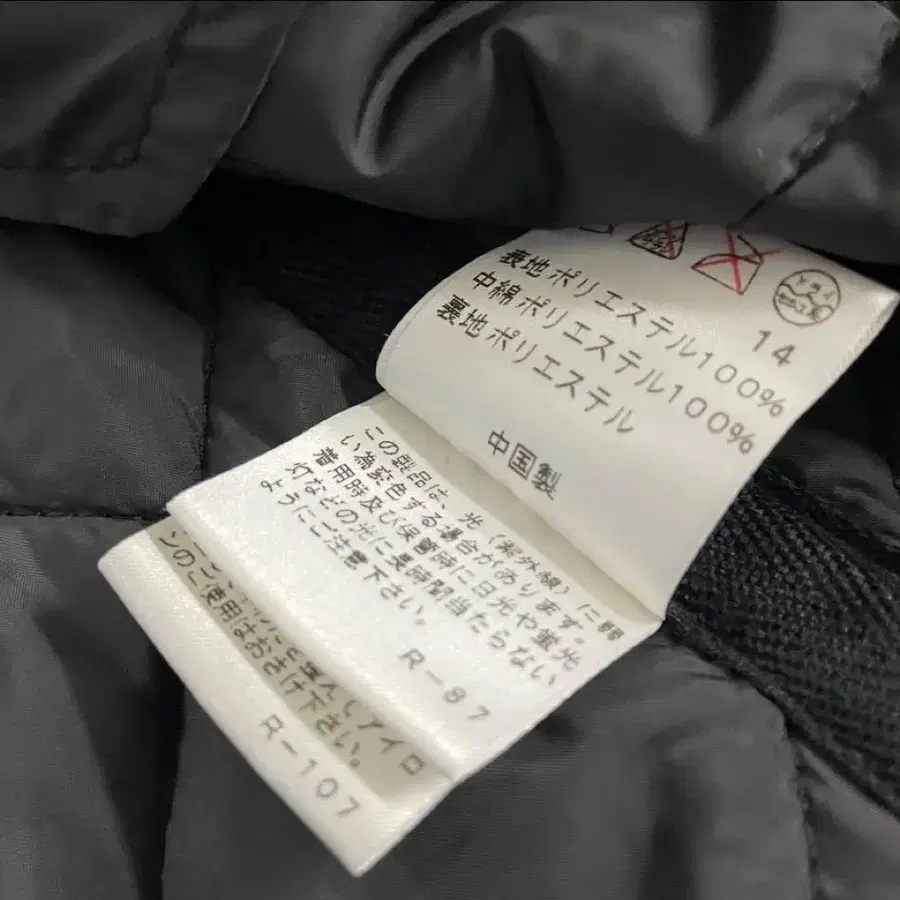 14
表地ポリエステル100%
中綿ポリエステル100%
裏地ポリエステル
中国製
この型品は、光(紫外線)に弱
い為変色する場合があります。
着用時及び保管時に日光や蛍光
灯などの光に長時間当たらない
ようにご注意下さい。
R-87
アイロ
ンのご使用はおさけ下さい。
R-107